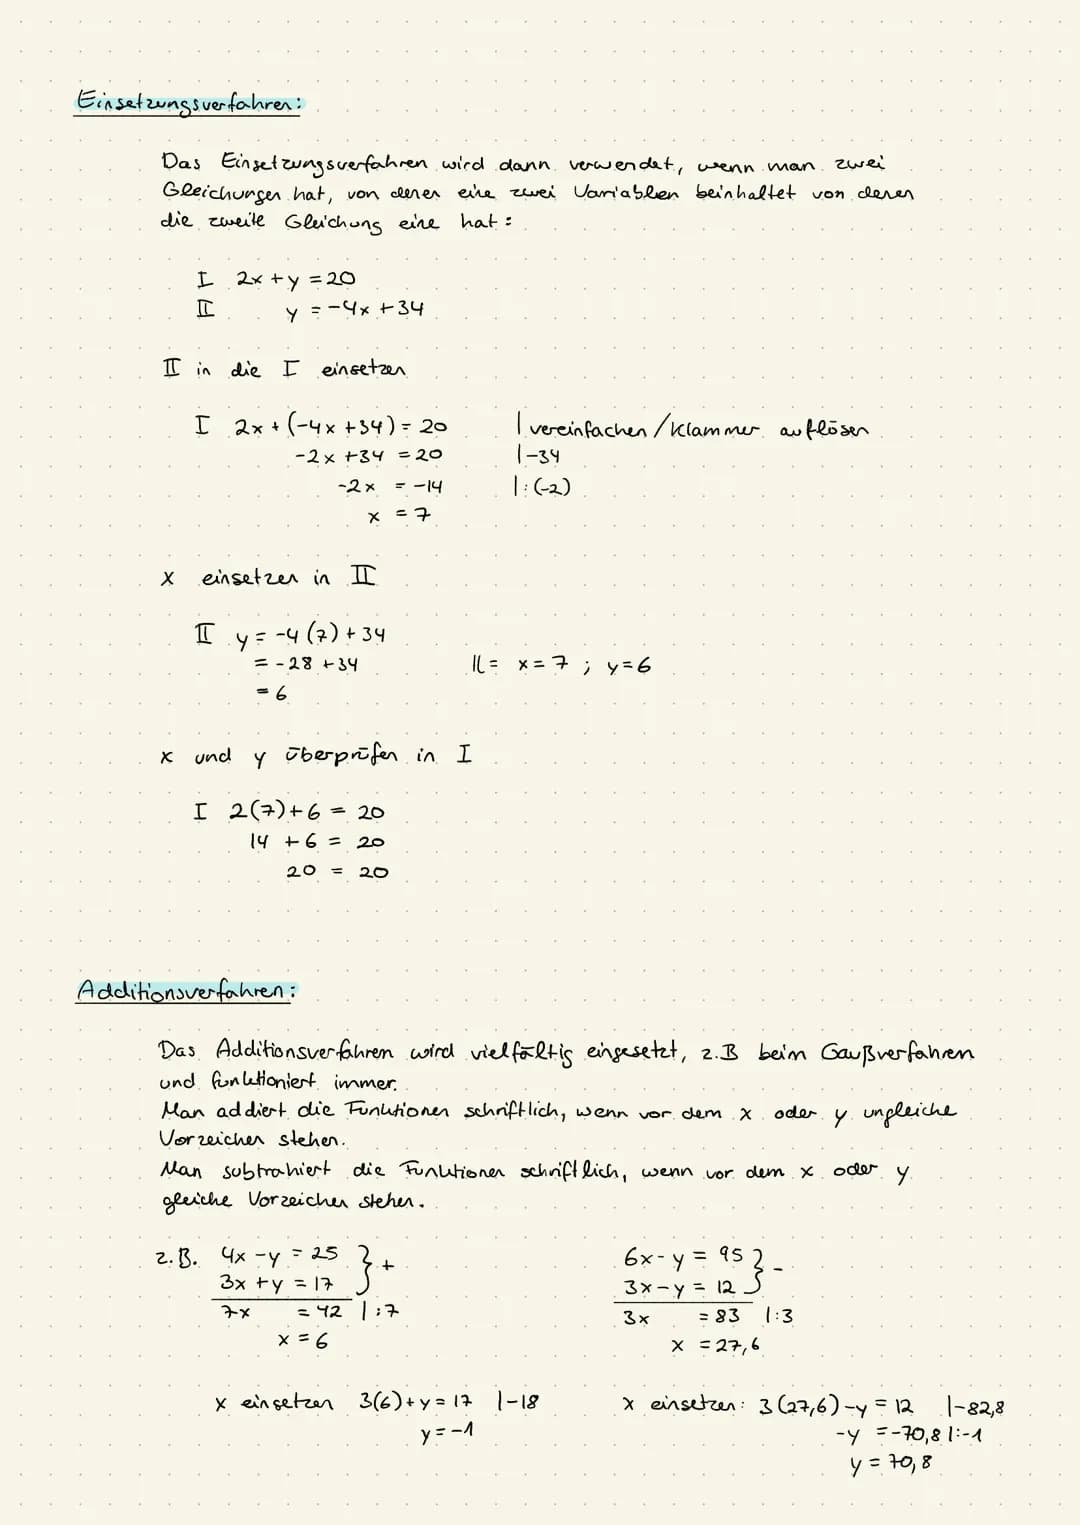 Einsetzungsverfahren:
Das Einsetzungsverfahren wird dann verwendet, wenn man zwei
Gleichungen hat, von denen eine zwei Variablen beinhaltet von denen
die zweite Gleichung eine hat:
I 2x + y = 20
II y = -4x + 34
II in die I einsetzen
I 2x + (-4x + 34) = 20 | vereinfachen / Klammer auflösen
-2x + 34 = 20 | -34
-2x = -14 | : (-2)
x = 7
x einsetzen in II
II y = -4(7) + 34
= -28 + 34 𝕃 = x = 7 ; y = 6
= 6
x und y überprüfen in I
I 2(7) + 6 = 20
14 + 6 = 20
20 = 20
Additionsverfahren:
Das Additionsverfahren wird vielfältig eingesetzt, z.B beim Gaußverfahren
und funktioniert immer.
Man addiert die Funktionen schriftlich, wenn vor dem x oder y ungleiche
Vorzeichen stehen.
Man subtrahiert die Funktionen schriftlich, wenn vor dem x oder y
gleiche Vorzeichen stehen.
z.B. 4x - y = 25 } +
3x + y = 17
7x = 42 | :7
x = 6
x einsetzen 3(6) + y = 17 | -18
y = -1
6x - y = 95 } -
3x - y = 12
3x = 83 | :3
x = 27,6
x einsetzen: 3(27,6) - y = 12 | -82,8
-y = -70,8 | : -1
y = 70,8